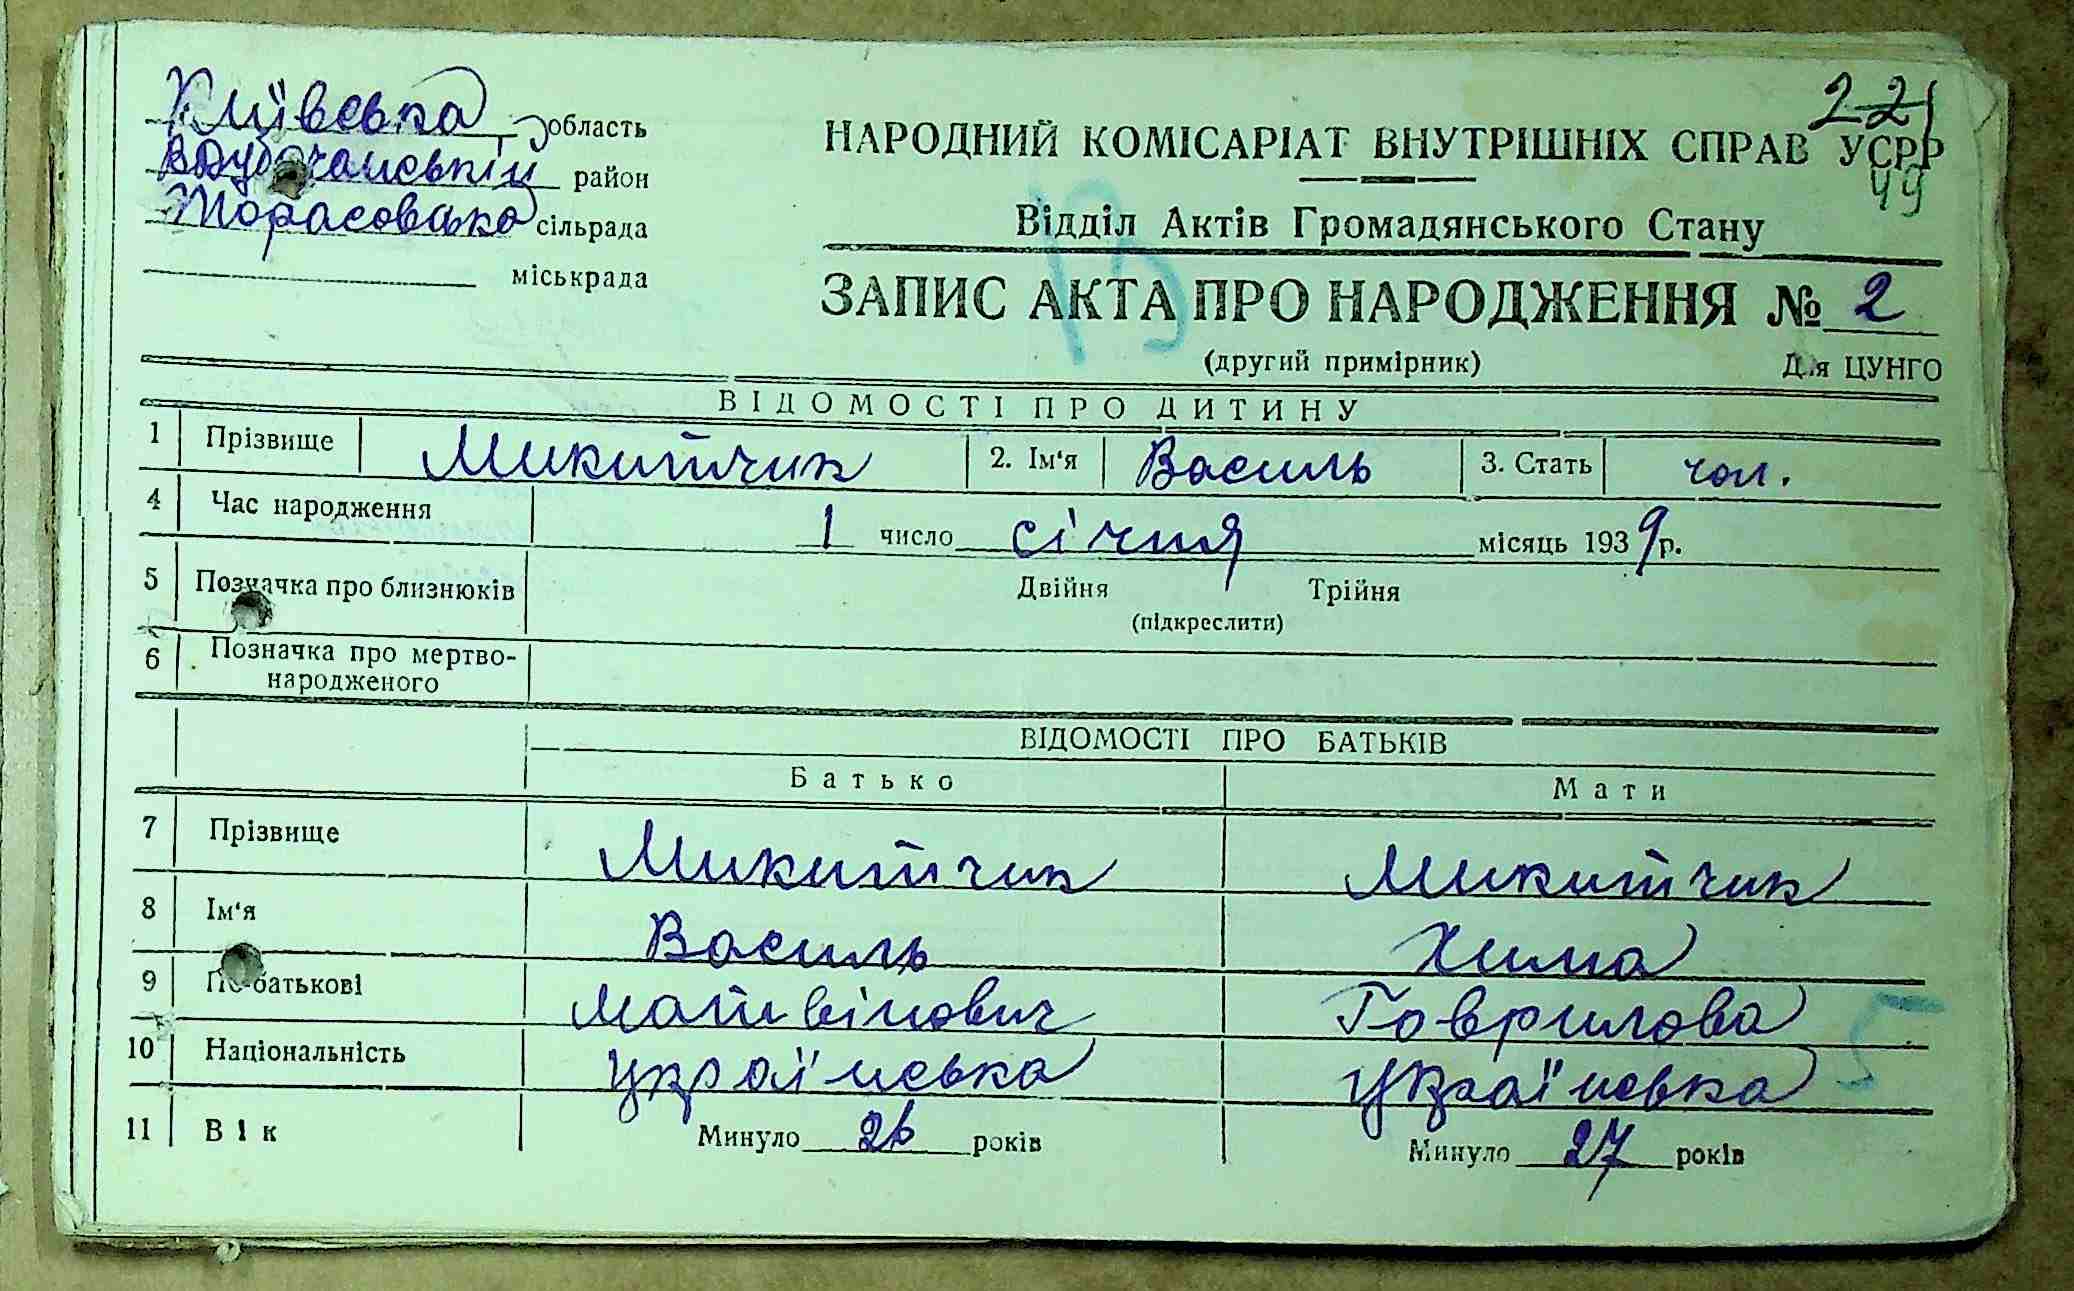 Київська область
район
Торасовська сільрада
міськрада
221
49
НАРОДНИЙ КОМІСАРІАТ ВНУТРІШНІХ СПРАВ УСРР
Відділ Актів Громадянського Стану
ЗАПИС АКТА ПРО НАРОДЖЕННЯ № 2
(другий примірник) Для ЦУНГО
ВІДОМОСТІ ПРО ДИТИНУ
1 Прізвище Микитчик 2. Ім'я Василь 3. Стать чол.
4 Час народження 1 число січня місяць 1939 р.
5 Позначка про близнюків Двійня Трійня
(підкреслити)
6 Позначка про мертво-
народженого
ВІДОМОСТІ ПРО БАТЬКІВ
Батько Мати
7 Прізвище Микитчик Микитчик
8 Ім'я Василь Хима
9 По-батькові Матвіїнович Говрилова
10 Національність українська українська
11 Вік Минуло 26 років Минуло 27 років
5